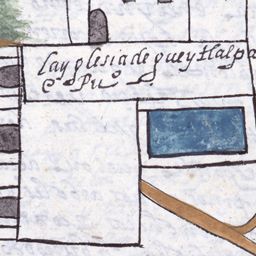 la yglesia de gueytlalpa
Pu⁰.